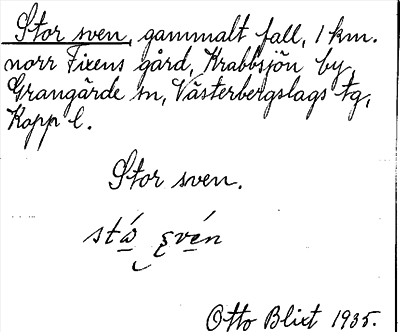 Stor sven, gammalt fall, 1 km.
norr Fixens gård, Krabbsjön by,
Grangärde sn, Västerbergslags tg,
Kopp l.
Stor sven.
Otto Blixt 1935.